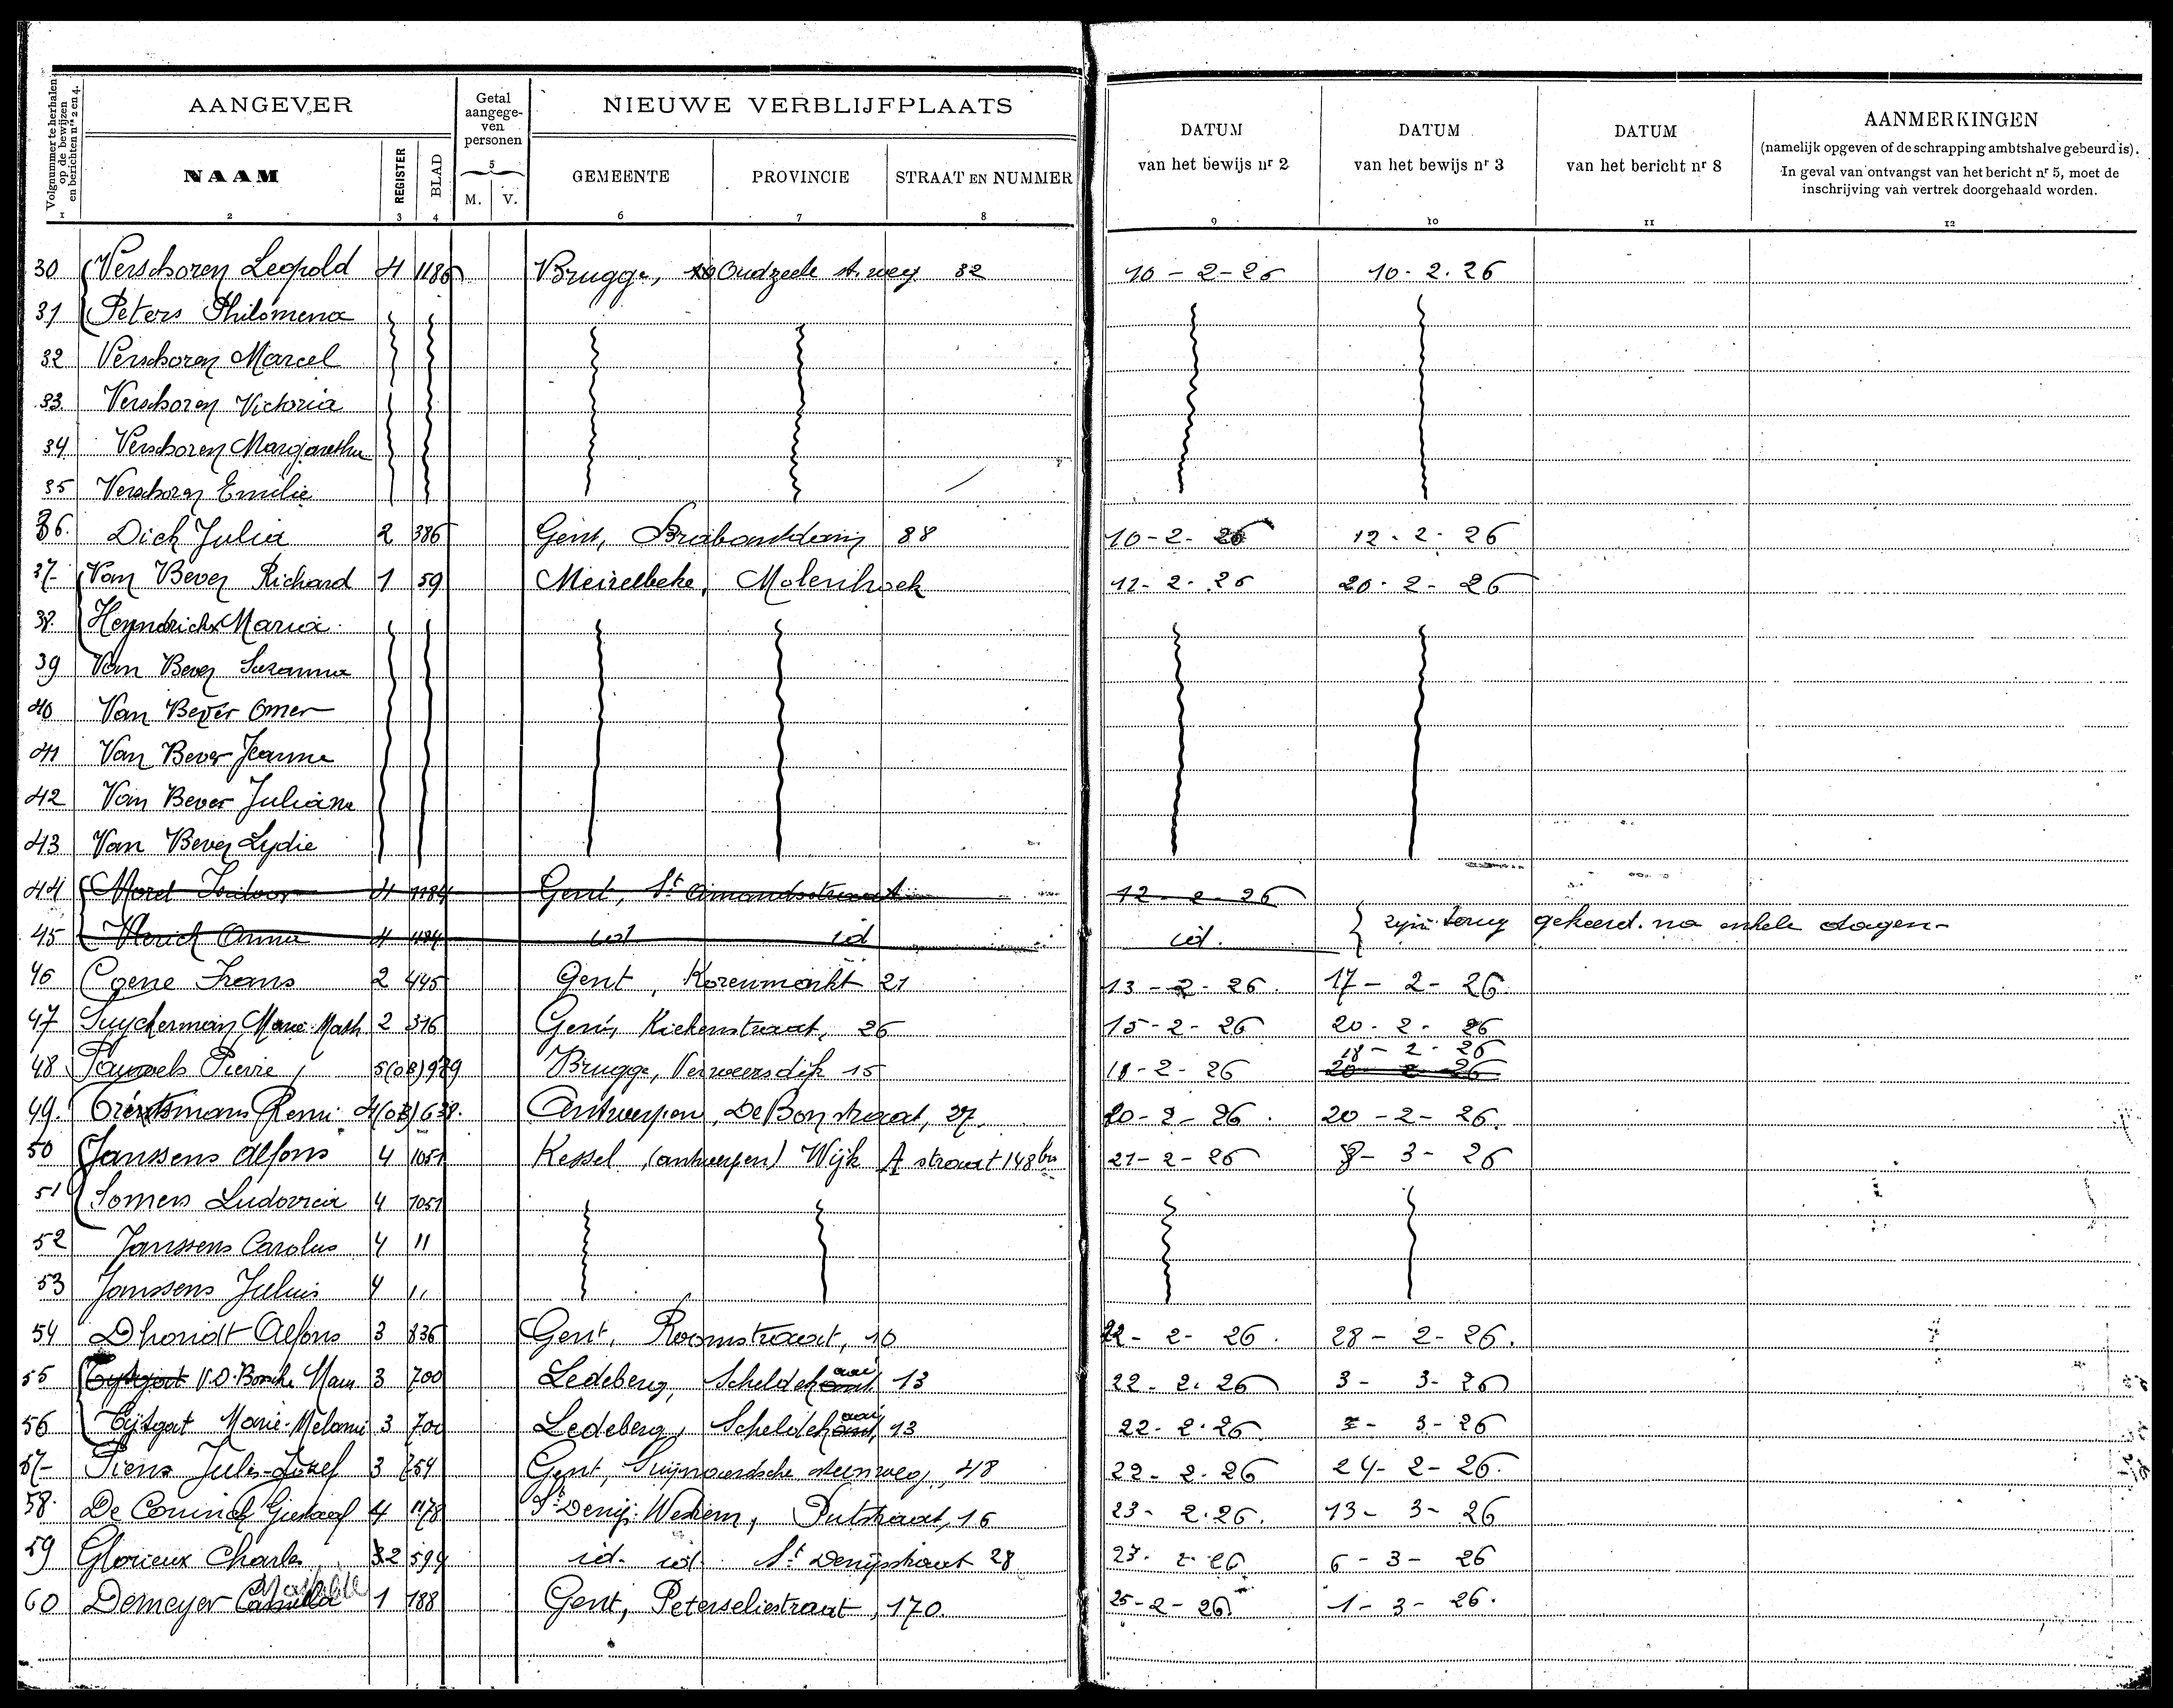 Volgnummer te herhalen op de bewijzen en berichten nrs 2 en 4.
AANGEVER
NAAM
REGISTER
BLAD
Getal aangegeven personen
5
M. V.
NIEUWE VERBLIJFPLAATS
GEMEENTE PROVINCIE STRAAT EN NUMMER
DATUM van het bewijs nr 2
DATUM van het bewijs nr 3
DATUM van het bericht nr 8
AANMERKINGEN
(namelijk opgeven of de schrapping ambtshalve gebeurd is).
In geval van ontvangst van het bericht nr 5, moet de
inschrijving van vertrek doorgehaald worden.
1 2 3 4 6 7 8 9 10 11 12
30 Verschoren Leopold 4 1186 Brugge, Oudzeele st. weg 32 10-2-26 10.2.26
31 Peters Philomena
32 Verschoren Marcel
33. Verschoren Victoria
34 Verschoren Margaretha
35 Verschoren Emilie
36. Dick Julia 2 386 Gent, Brabantdam 88 10-2-26 12.2.26
37- Van Bever Richard 1 59 Meirelbeke, Molenhoek 12-2-26 20-2-26
38. Heyndrickx Maria
39 Van Bever Suzanna
40 Van Bever Omer
41 Van Bever Jeanne
42 Van Bever Juliana
43 Van Bever Lydie
44 Morel Isidoor 4 1184 Gent, St Amandsstraat 12-2-26
45 Anna 4 1184 id id id. zijn terug gekeerd na enkele dagen-
46 Coene Frans 2 445 Gent, Korenmarkt 21 13-2-26. 17-2-26.
47 Suyckerman Marie-Math 2 316 Gent, Kiekenstraat, 26 15-2-26 20-2-26
48 Pauwels Pierre 5(08)929 Brugge, Verwersdijk 15 18-2-26 18-2-26 20-2-26
49. Remi 4(03)638. Antwerpen, De Bonstraat, 27. 20-2-26. 20-2-26.
50 Janssens Alfons 4 1051 Kessel (antwerpen) Wijk A straat 148bis 21-2-26 8-3-26
51 Somers Ludovica 4 1051
52 Janssens Carolus 4 11
53 Janssens Julius 4 11
54 Dhondt Alfons 3 836 Gent, Roomstraat, 10 22-2-26. 28-2-26.
55 Tytgat V.D. Bossche Maur 3 700 Ledeberg, Scheldekaai 13 22-2-26 3-3-26
56 Tijtgat Marie-Melanie 3 700 Ledeberg, Scheldekaai, 13 22-2-26 3-26
57- Piens Jules-Jozef 3 754 Gent, Swijnaardsche steenweg, 48 22-2-26 24-2-26.
58. De Coninck Gustaaf 4 1178 St Denijs Westrem, Putstraat, 16 23-2.26. 13-3-26
59 Glorieux Charles 2 594 id. id. St Denijsstraat 28 23-2-26 6-3-26
60 Demeyer Camilla Mathilde 1 188 Gent, Peterseliestraat, 170. 25-2-26. 1-3-26.